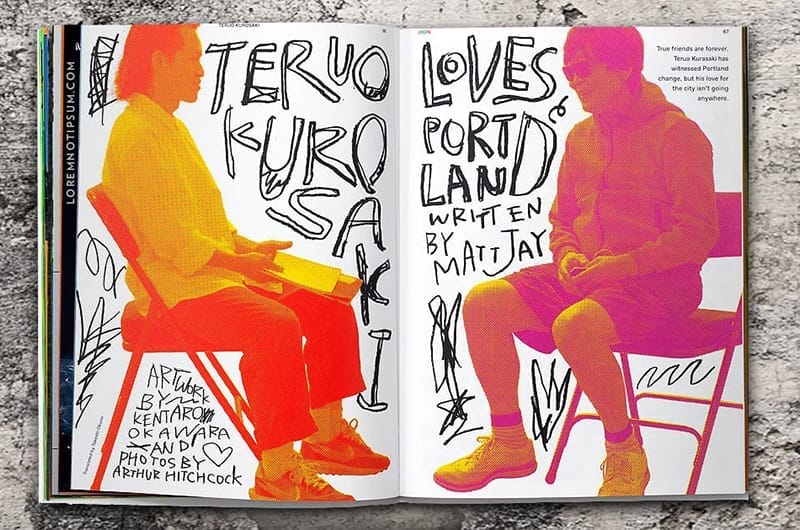 LOREMNOTIPSUM.COM
TERUO KUROSAKI
TERUO
KURO
SAKI
ARTWORK
BY
KENTARO
OKAWARA
AND
PHOTOS BY
ARTHUR HITCHCOCK
JOON
67
LOVES
PORT
LAND
WRITTEN
BY
MATT JAY
True friends are forever.
Teruo Kurasaki has
witnessed Portland
change, but his love for
the city isn't going
anywhere.